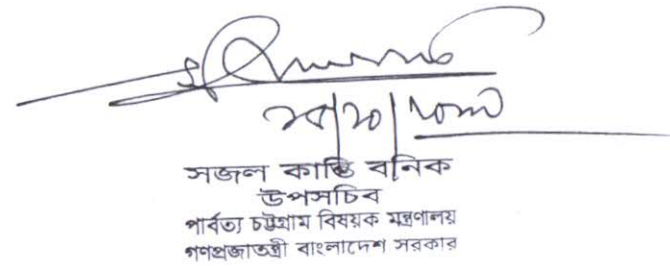 সজল কান্তি বনিক
উপসচিব
পার্বত্য চট্টগ্রাম বিষয়ক মন্ত্রণালয়
গণপ্রজাতন্ত্রী বাংলাদেশ সরকার